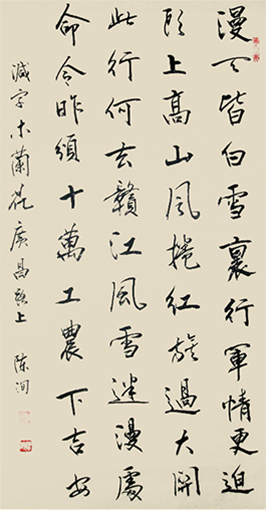 漫天皆白雪裏行軍情更迫
頭上高山風捲紅旗過大關
此行何去贛江風雪迷漫處
命令昨頒十萬工農下吉安
減字木蘭花廣昌路上 陈